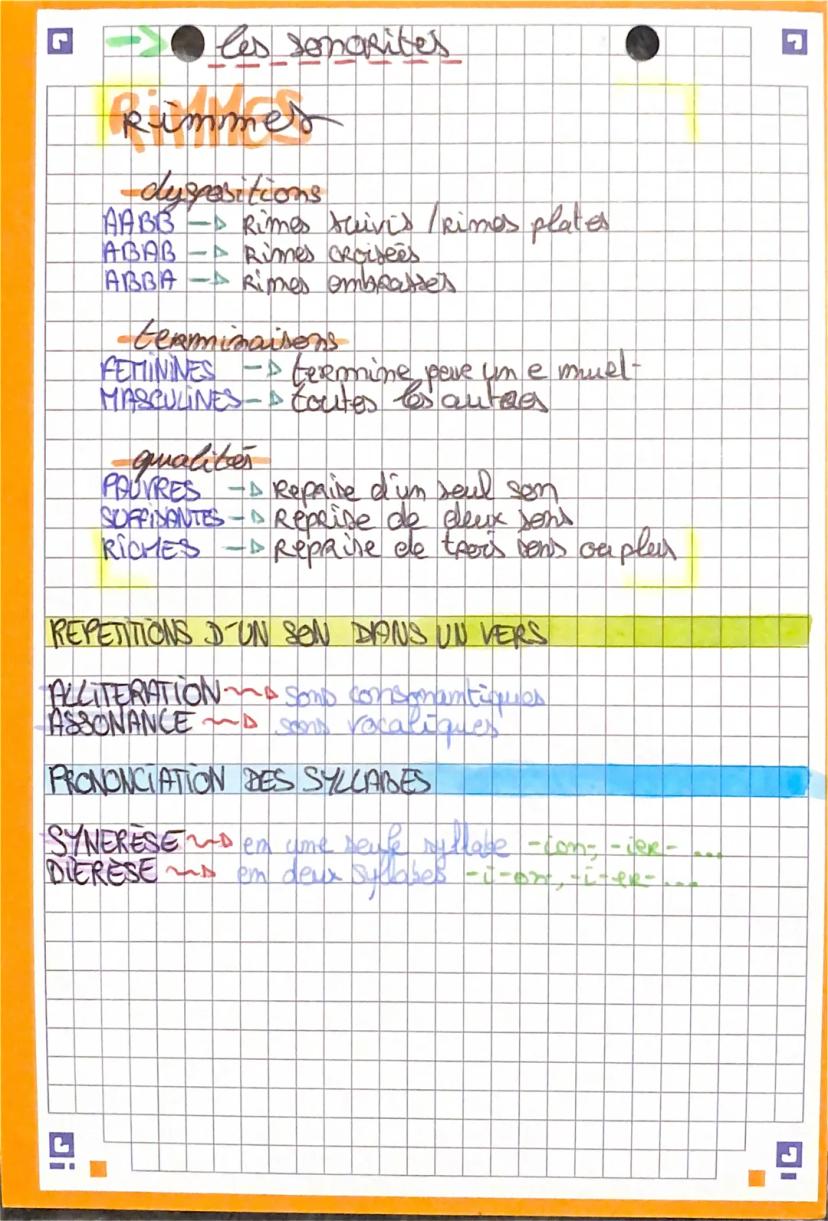 → les sonorites
RiMMES
Rimmes
dyspositions
AABB → Rimes suivis / rimes plates
ABAB → Rimes croisées
ABBA → Rimes embrasses
terminaisons
FEMININES → termine par un e muet
MASCULINES → toutes les autres
qualités
PAUVRES → Reprise d'un seul son
SUFFISANTES → reprise de deux sons
RiCHES → Reprise de trois sons ou plus
REPETITIONS D'UN SON DANS UN VERS
ALLiTERATiON → sons consonantiques
ASSONANCE → sons vocaliques
PRONONCiATiON DES SYLLABES
SYNERÈSE → en une seule syllabe -ion-, -ier- ...
DiERÈSE → en deux syllabes -i-on-, -i-er-...